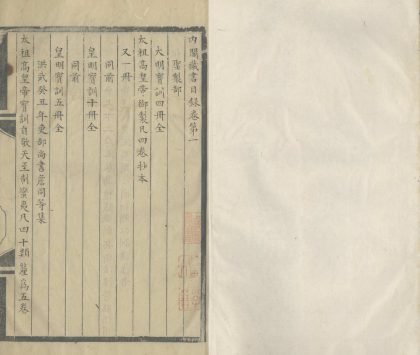 內閣藏書目錄卷第一
聖製部
大明寶訓四冊全
太祖高皇帝御製凡四卷抄本
又一冊
同前
皇明寶訓十冊全
同前
皇明寶訓五冊全
洪武癸丑年吏部尚書詹同等集
太祖高皇帝寶訓自敬天至制蠻夷凡四十類釐爲五卷